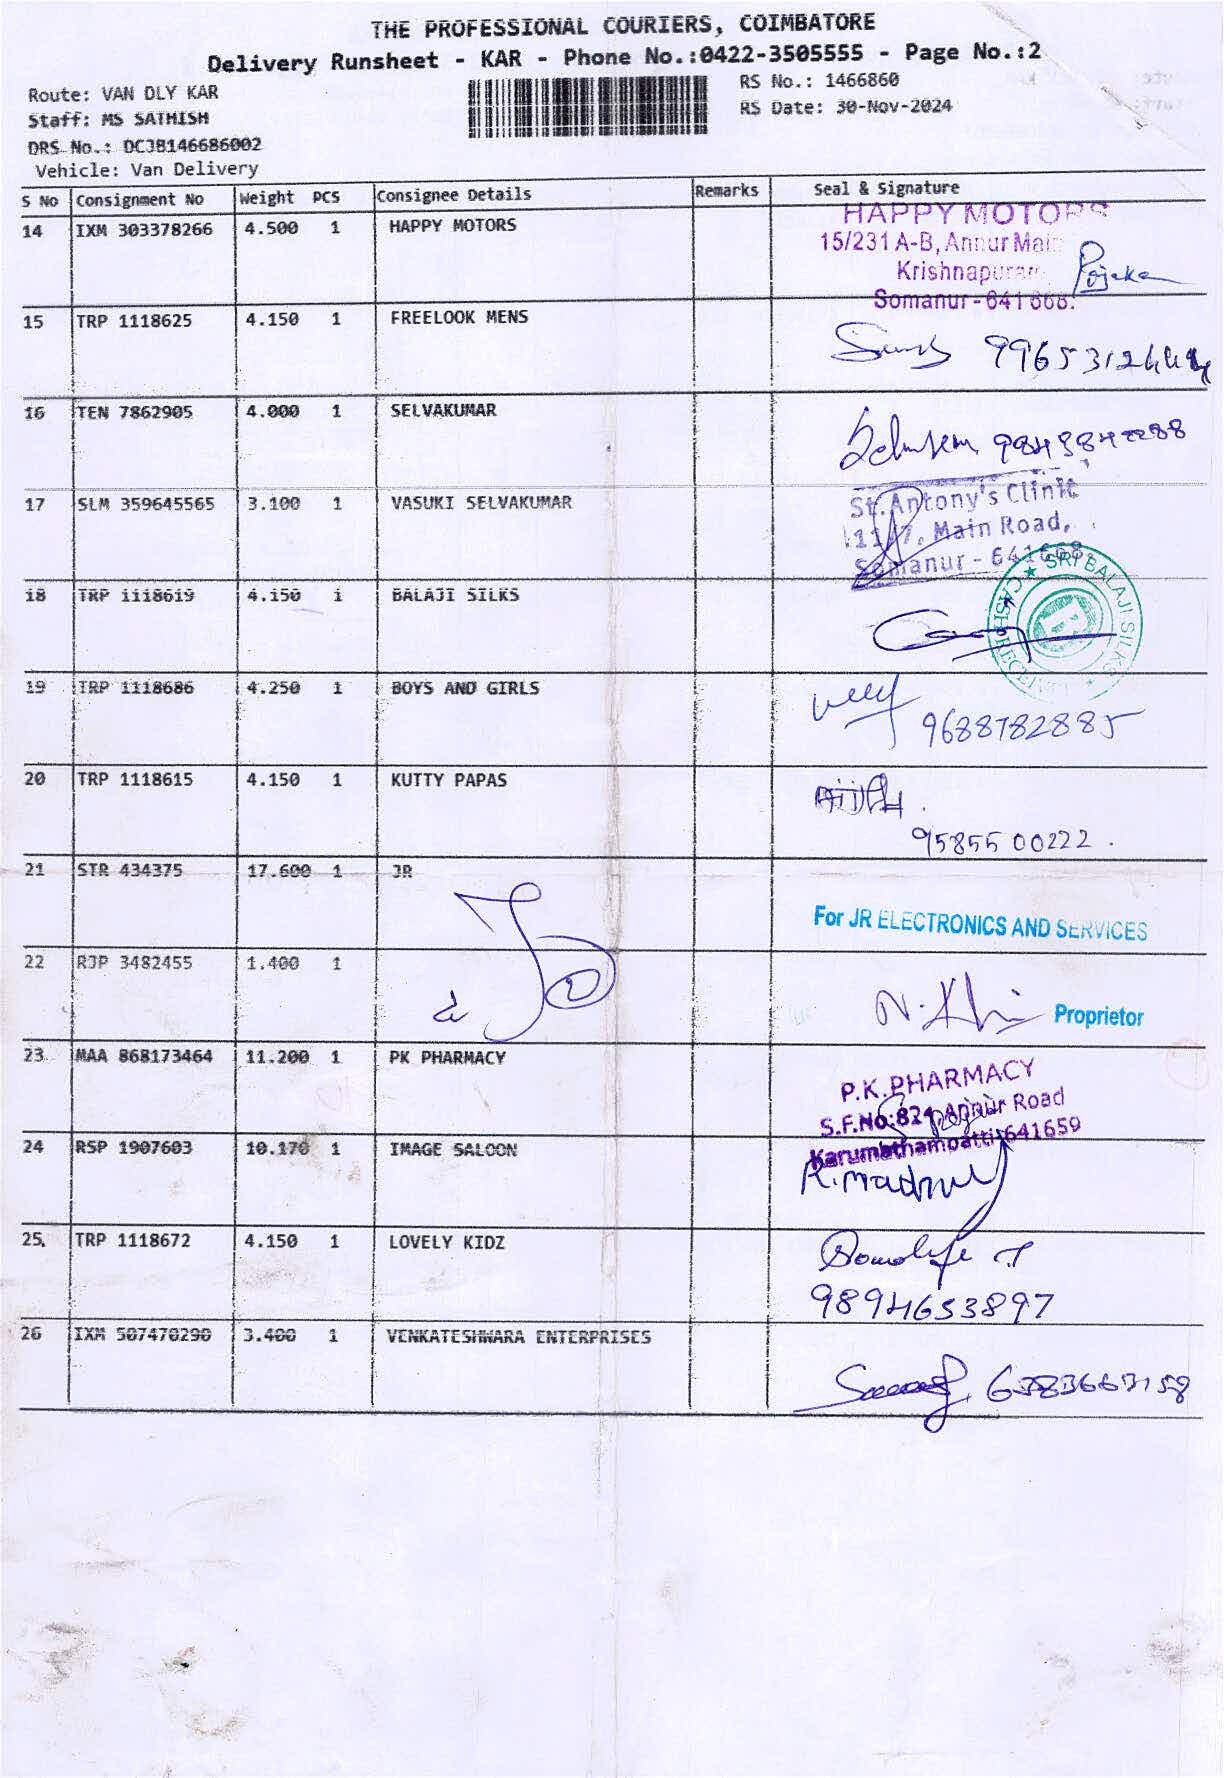 THE PROFESSIONAL COURIERS, COIMBATORE
Delivery Runsheet - KAR - Phone No.:0422-3505555 - Page No.:2
Route: VAN DLY KAR
RS No.: 1466860
Staff: MS SATHISH
RS Date: 30-Nov-2024
DRS No.: DCJB146686002
Vehicle: Van Delivery
S No Consignment No Weight PCS Consignee Details Remarks Seal & Signature
14 IXM 303378266 4.500 1 HAPPY MOTORS
HAPPY MOTORS
15/231 A-B, Annur Main
Krishnapuram
Pojeka
Somanur - 641 668.
15 TRP 1118625 4.150 1 FREELOOK MENS
16 TEN 7862905 4.000 1 SELVAKUMAR
17 SLM 359645565 3.100 1 VASUKI SELVAKUMAR
St.Antony's Clinic
11/7, Main Road,
Somanur - 641668.
18 TRP 1118619 4.150 1 BALAJI SILKS
SRI BALAJI SILKS
CASH RECEIVED
19 TRP 1118686 4.250 1 BOYS AND GIRLS
9688782885
20 TRP 1118615 4.150 1 KUTTY PAPAS
9585500222.
21 STR 434375 17.600 1 JR
For JR ELECTRONICS AND SERVICES
22 RJP 3482455 1.400 1
Proprietor
23 MAA 868173464 11.200 1 PK PHARMACY
P.K.PHARMACY
S.F.No:824, Annur Road
Karumathampatti-641659
24 RSP 1907603 10.170 1 IMAGE SALOON
25 TRP 1118672 4.150 1 LOVELY KIDZ
9894653897
26 IXM 507470290 3.400 1 VENKATESHWARA ENTERPRISES
6383663158